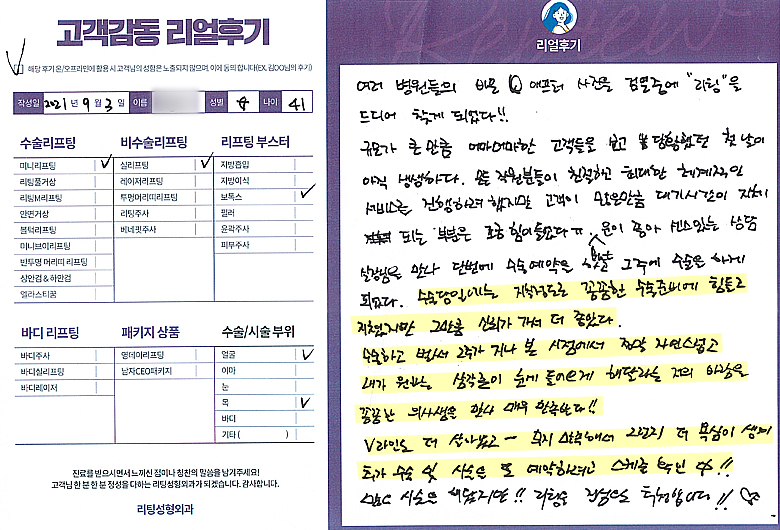 고객감동 리얼후기
해당 후기 온/오프라인에 활용 시 고객님의 성함은 노출되지 않으며, 이에 동의 합니다(EX. 김OO님의 후기)
작성일 2021년 9월 3일 이름 성별 우 나이 41
수술리프팅 비수술리프팅 리프팅 부스터
미니리프팅 실리프팅 지방흡입
리팅풀거상 레이저리프팅 지방이식
리팅M리프팅 투명머리띠리프팅 보톡스
안면거상 리팅주사 필러
볼턱리프팅 베네핏주사 윤곽주사
미니브이리프팅 피부주사
반투명 머리띠 리프팅
상안검 & 하안검
엘라스티꿈
바디 리프팅 패키지 상품 수술/시술 부위
바디주사 영데이리프팅 얼굴
바디실리프팅 남자CEO패키지 이마
바디레이저 눈
목
바디
기타 ( )
진료를 받으시면서 느끼신 점이나 칭찬의 말씀을 남겨주세요!
고객님 한 분 한 분 정성을 다하는 리팅성형외과가 되겠습니다. 감사합니다.
리팅성형외과
리얼후기
여러 병원들의 비포 & 애프터 사진을 검색중에 "리팅"을
드디어 찾게 되었다!!
규모가 큰 만큼 어마어마한 고객들을 보고 당황했던 첫 날이
아직 생생하다. 모든 직원분들이 친절하고 최대한 체계적인
서비스로 진행하려 했지만 고객이 많은만큼 대기시간이 지체
되는 부분은 조금 힘이들었다ㅠ 운이 좋아 센스있는 상담
실장님을 만나 단번에 수술예약을 하고 그주에 수술을 하게
되었다. 수술당일에는 지칠정도로 꼼꼼한 수술준비에 힘들고
지쳤지만 그만큼 신뢰가 가서 더 좋았다.
수술하고 벌써 2주가 지나 본 시점에서 정말 자연스럽고
내가 원하는 삼각존이 눈에 들어오게 해달라는 저의 바램을
꼼꼼한 의사쌤을 만나 매우 만족한다!!
V라인도 더 살아났고 ㅡ 휴지 만족해서 그런지 더 욕심이 생겨
추가 수술 및 시술은 또 예약하려고 스케줄 확인 中!!
시술은 해봤지만!! 리팅은 진심으로 추천합니다!! ♡